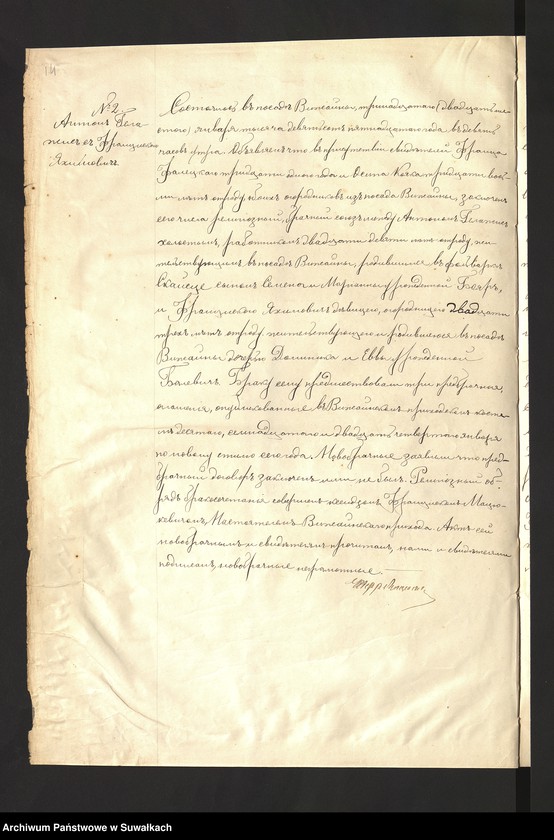 14
№ 2.
Антонъ
съ Францишкою
Яхимовичъ
Состоялось въ посадѣ Вижайны, тринадцатаго (двадцать ше-
стого) Января тысяча девятьсотъ пятнадцатаго года въ девять
часовъ утра. Объявляемъ что въ присутствіи свидѣтелей Франца
тридцати одного года и Осипа тридцати вось-
ми лѣтъ отъ роду обоихъ огородниковъ изъ посада Вижайны, заключенъ
сего числа религіозный брачный союзъ между Антономъ
холостымъ, работникомъ двадцати девяти лѣтъ отъ роду, жи-
тельствующимъ въ посадѣ Вижайны, родившимся въ фольваркѣ
сыномъ и Маріанны урожденной
и Францишкою Яхимовичъ дѣвицею, двадцати
трехъ лѣтъ отъ роду жительствующею и родившеюся въ посадѣ
Вижайны дочерью Доминика и Еввы урожденной
Балевичъ. Браку сему предшествовали три предбрачныя
оглашенія, опубликованныя въ Вижайнскомъ приходскомъ косте-
лѣ десятаго, семнадцатаго и двадцать четвертаго января
по новому стилю сего года. Новобрачные заявили что пред-
брачный договоръ заключенъ ими не былъ. Религіозный об-
рядъ бракосочетанія совершенъ ксендзомъ Францишкомъ Мацю-
кевичемъ Настоятелемъ Вижайнскаго прихода. Актъ сей
новобрачнымъ и свидѣтелямъ прочитанъ, нами и свидѣтелями
подписанъ, новобрачные неграмотные.
Archiwum Państwowe w Suwałkach